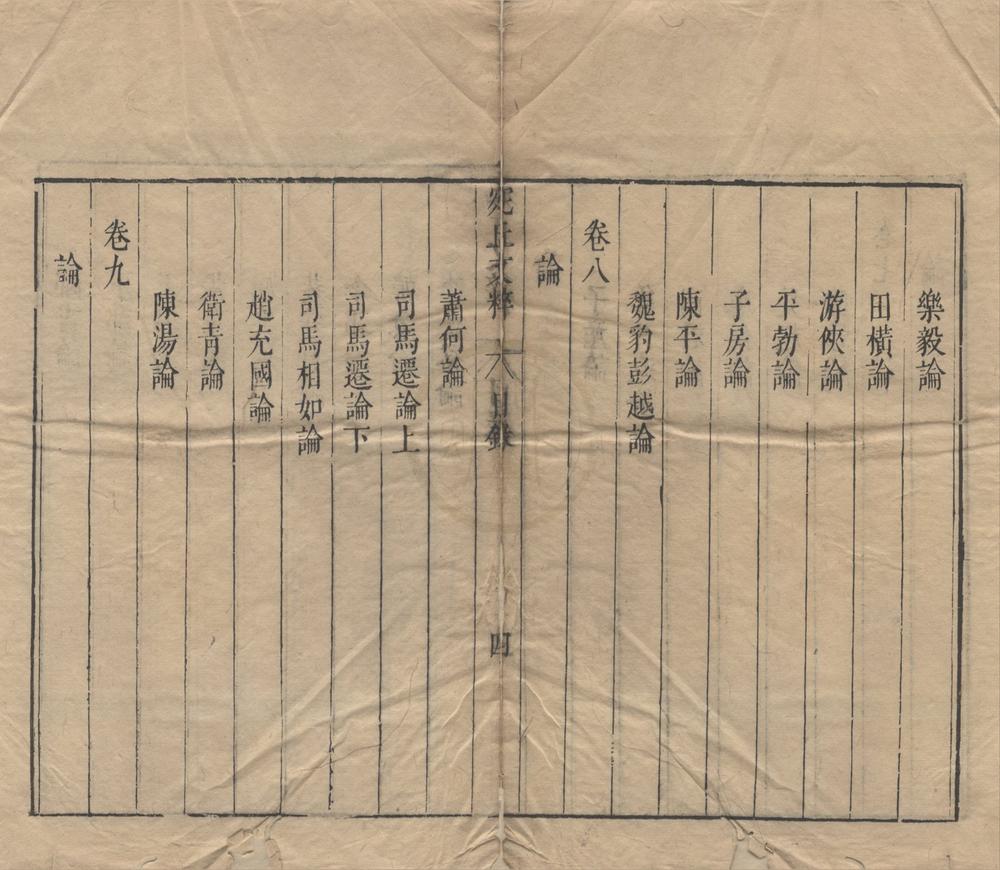 樂毅論
田橫論
游俠論
平勃論
子房論
陳平論
魏豹彭越論
卷八
論
宛丘文粹 目錄 四
蕭何論
司馬遷論上
司馬遷論下
司馬相如論
趙充國論
衛青論
陳湯論
卷九
論